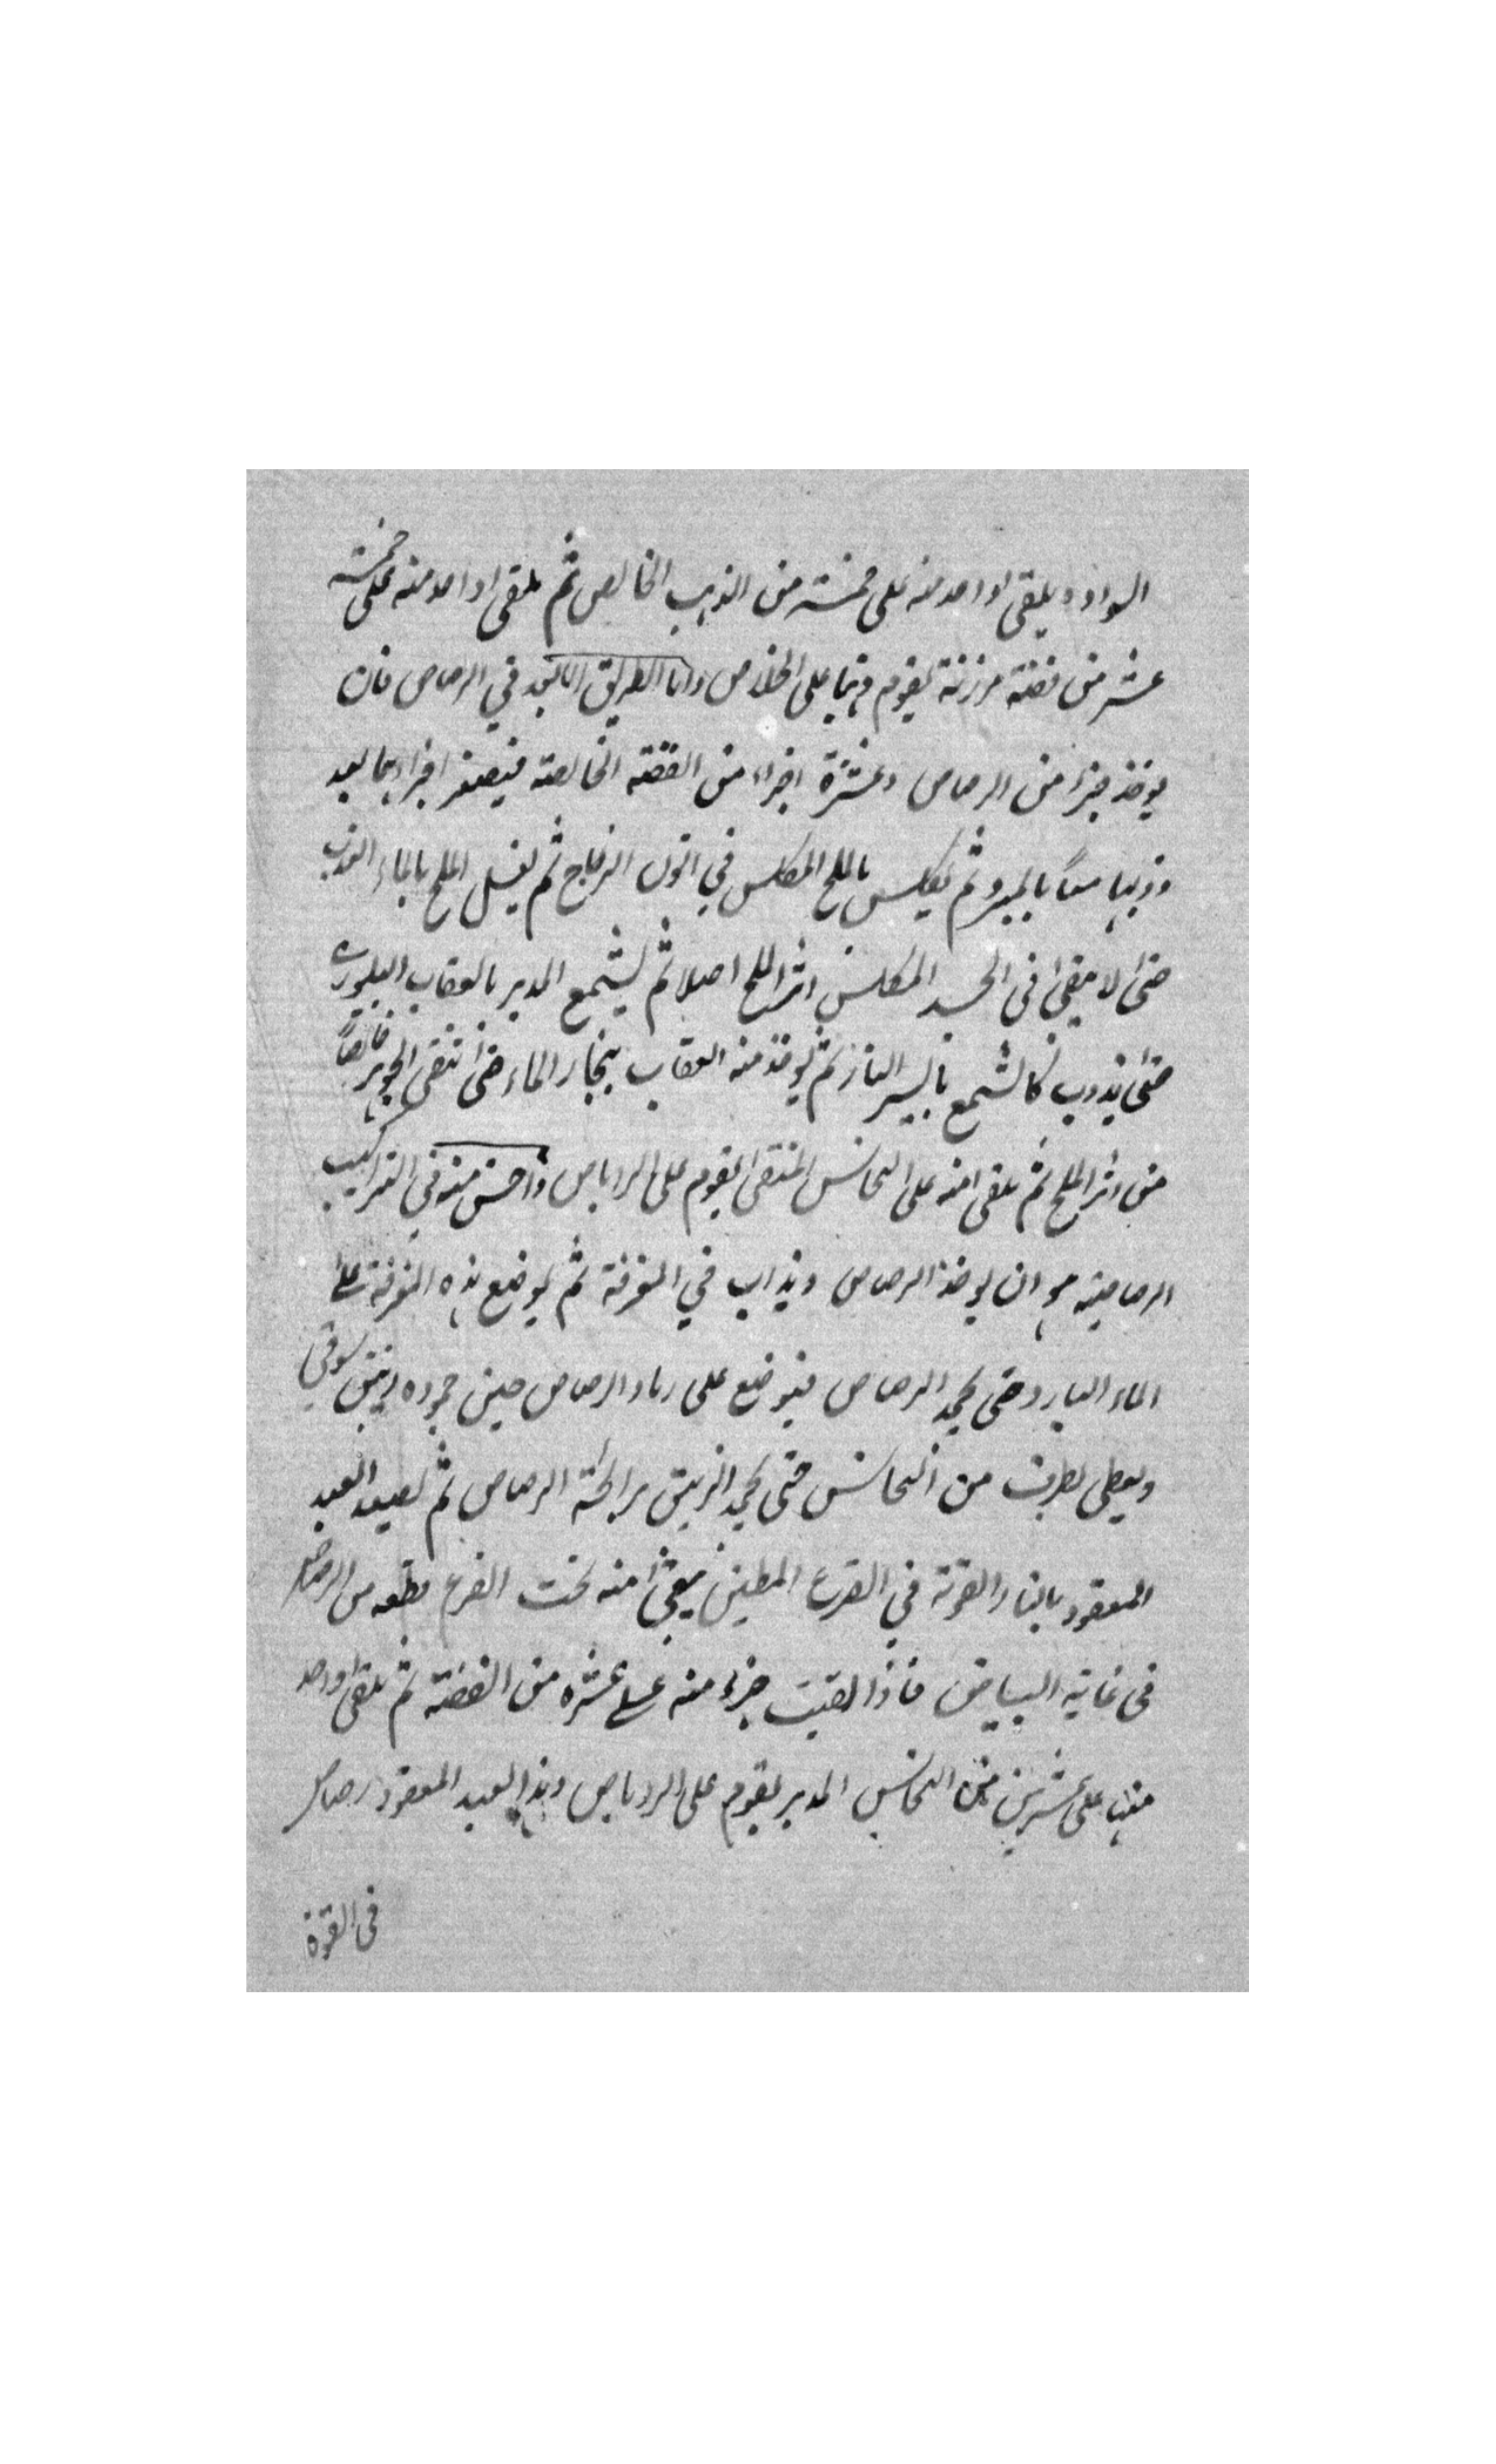 السواد و يلقى الواحد منه على خمسة من الذهب الخالص ثم يلقى الواحد منه على خمسة
عشر من فضة مرزنة يقوم ذهبا على الخلاص واما الطريق الابعد في الرصاص فان
يوخذ جزء من الرصاص وعشرة اجزاء من الفضة الخالصة فيصغر اجزاءهما بعد
ذوبهما معاً بالمبرد ثم يكلس بالملح المكلس في اتون الزجاج ثم يغسل الملح بالماء العذب
حتى لا يبقى في الجسد المكلس اثر الملح اصلا ثم يشمع المدبر بالعقاب البلورى
حتى يذوب كالشمع بايسر النار ثم يوخذ منه العقاب ببخار الماء حتى تنقى الجوهر خالصاً
من اثر الملح ثم يلقى منه على النحاس المنقى يقوم على الروباص واحسن منه في التراكيب
الرصاصية هو ان يوخذ الرصاص ويذاب في المغرفة ثم يوضع هذه المغرفة على
الماء البارد حتى يجمد الرصاص فيوضع على رماد الرصاص حين جموده زيبق سوقي
ويعطى بطرف من النحاس حتى يجمد الزيبق برائحة الرصاص ثم تصعد العبد
المعقود بالنار القوية في القرع المطين فيبقى منه تحت القرع قطعه من الرصاص
في غاية البياض فاذا القيت جزء منه على عشره من الفضة ثم يلقى واحد
منها على عشرين من النحاس المدبر يقوم على الروباص وهذا العبد المعقود رصاص
في القوة